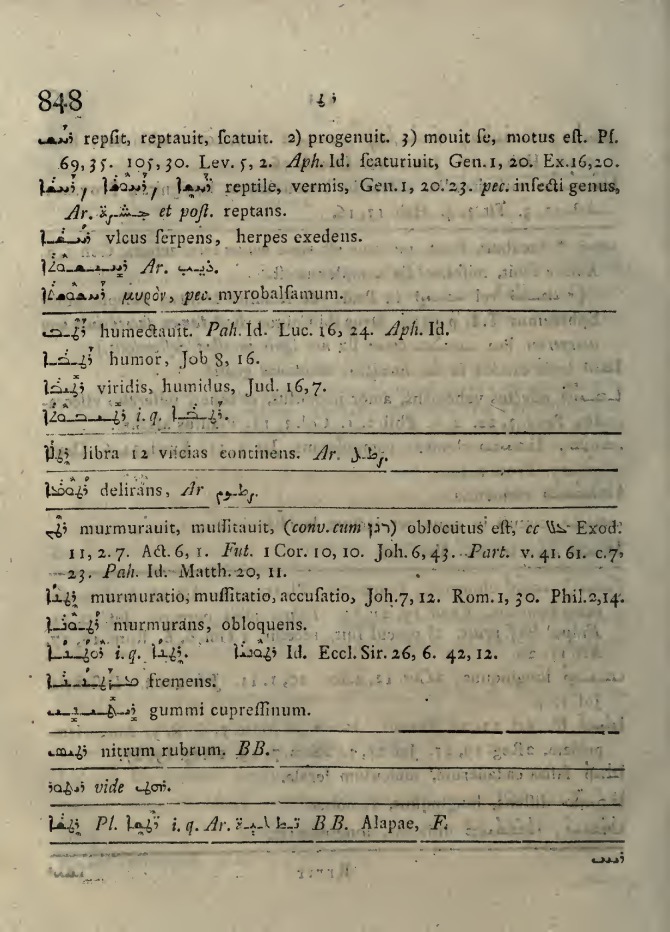 848
ܪܛ
ܪܚܫ repſit, reptauit, ſcatuit. 2) progenuit. 3) mouit ſe, motus eſt. Pſ.
69,35. 105,30. Lev. 5, 2. Aph. Id. ſcaturiuit, Gen. 1, 20. Ex. 16,20.
reptile, vermis, Gen. 1, 20. 23. pec. inſecti genus,
Ar. et poſt. reptans.
vlcus ſerpens, herpes exedens.
Ar.
μυρὸν, pec. myrobalſamum.
ܪܛܒ humectauit. Pah. Id. Luc. 16, 24. Aph. Id.
ܪܛܒܐ humor, Job 8, 16.
ܪܛܝܒܐ viridis, humidus, Jud. 16,7.
ܪܛܝܒܘܬܐ i. q. ܪܛܒܐ.
ܪܛܠܐ libra 12 vncias continens. Ar. رطل.
ܪܛܘܡܐ delirans, Ar رطوم.
ܪܛܢ murmurauit, muſſitauit, (conv. cum רגן) oblocutus eſt, cc ܥܠ Exod.
11, 2. 7. Act. 6, 1. Fut. 1 Cor. 10, 10. Joh. 6, 43. Part. v. 41. 61. c. 7,
23. Pah. Id. Matth. 20, 11.
ܪܛܢܐ murmuratio, muſſitatio, accuſatio, Joh. 7, 12. Rom. 1, 30. Phil. 2,14.
ܪܛܘܢܐ murmurans, obloquens.
i. q. ܪܛܢܐ. Id. Eccl. Sir. 26, 6. 42, 12.
fremens.
gummi cupreſſinum.
nitrum rubrum. BB.
vide ܪܗܛ.
Pl. i. q. Ar. BB. Alapae, F.